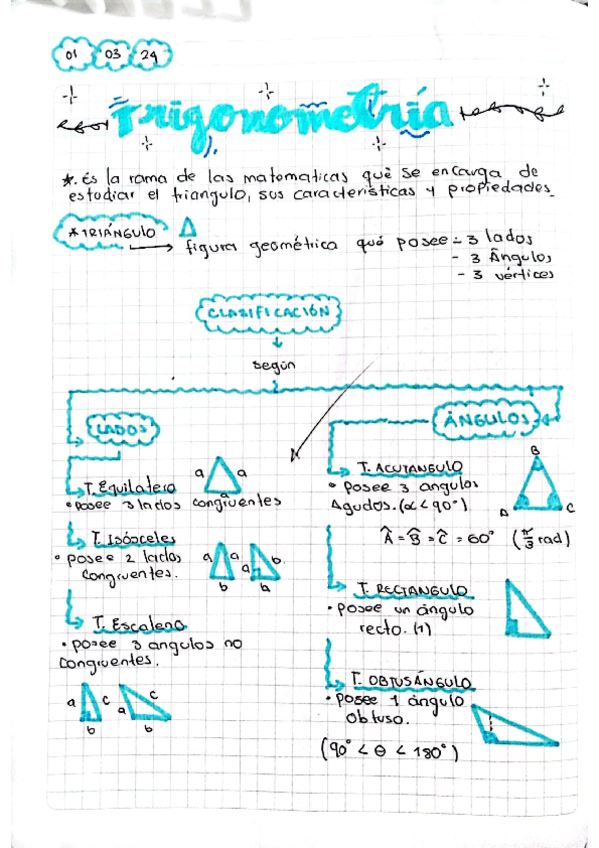 01 03 24
Trigonometría
*. és la rama de las matematicas què se encarga de
estudiar el triangulo, sus caracteristicas y propiedades
* TRIÁNGULO
figura geométrica qué posee - 3 lados
- 3 Ângulos
- 3 vértices
CLASIFICACIÓN
según
LADOS
ÁNGULOS
T. Equilatero
a a
• Posee 3 lados congruentes
T. Isósceles
• posee 2 lados
congruentes.
a a b
b a
a b
T. Escaleno
• posee 3 angulos no
congruentes.
a c
b
c
a
b
T. ACUTANGULO
• Posee 3 angulos
Agudos. (α < 90°)
B
A C
Â = B̂ = Ĉ = 60° (π/3 rad)
T. RECTANGULO
• posee un ángulo
recto. (1)
T. OBTUSÁNGULO
• Posee 1 ángulo
obtuso.
(90° < θ < 180°)